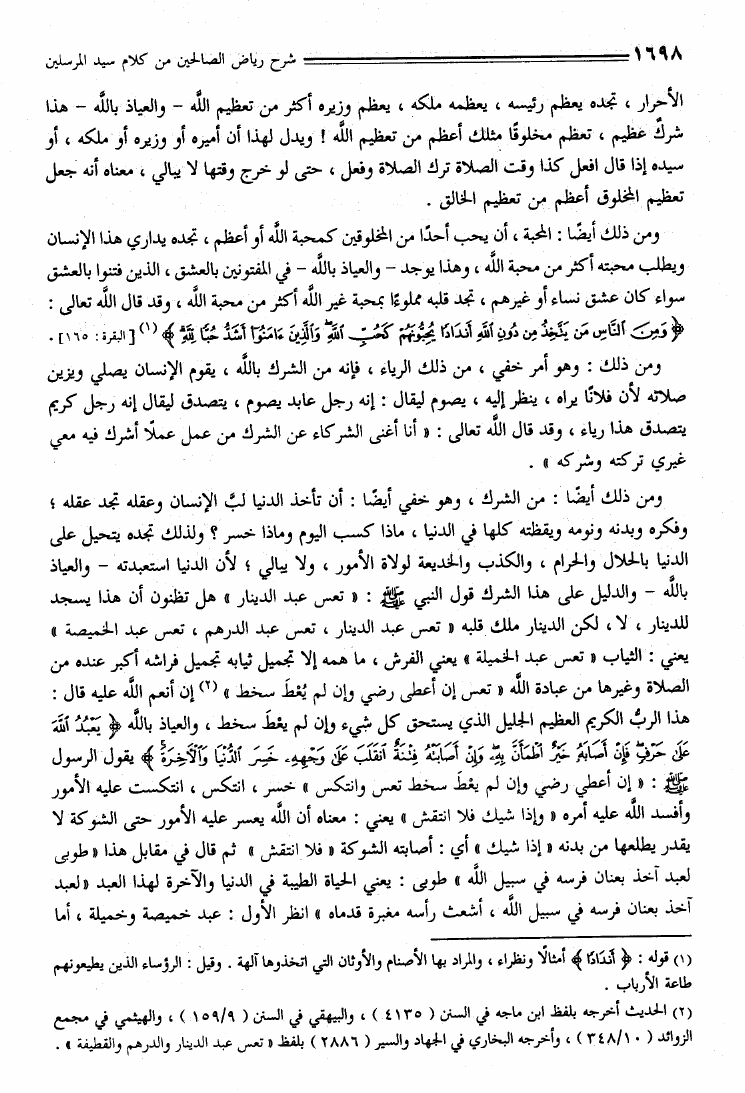 ١٦٩٨ شرح رياض الصالحين من كلام سيد المرسلين
الأحرار ، تجده يعظم رئيسه ، يعظمه ملكه ، يعظم وزيره أكثر من تعظيم اللَّه - والعياذ باللَّه - هذا
شركٌ عظيم ، تعظم مخلوقًا مثلك أعظم من تعظيم اللَّه ! ويدل لهذا أن أميره أو وزيره أو ملكه ، أو
سيده إذا قال افعل كذا وقت الصلاة ترك الصلاة وفعل ، حتى لو خرج وقتها لا يبالي ، معناه أنه جعل
تعظيم المخلوق أعظم من تعظيم الخالق .
ومن ذلك أيضًا : المحبة ، أن يحب أحدًا من المخلوقين كمحبة اللَّه أو أعظم ، تجده يداري هذا الإنسان
ويطلب محبته أكثر من محبة اللَّه ، وهذا يوجد - والعياذ باللَّه - في المفتونين بالعشق ، الذين فتنوا بالعشق
سواء كان عشق نساء أو غيرهم ، تجد قلبه مملوءًا بمحبة غير اللَّه أكثر من محبة اللَّه ، وقد قال اللَّه تعالى :
﴿ وَمِنَ ٱلنَّاسِ مَن يَتَّخِذُ مِن دُونِ ٱللَّهِ أَندَادًا يُحِبُّونَهُمْ كَحُبِّ ٱللَّهِ وَٱلَّذِينَ ءَامَنُوٓا۟ أَشَدُّ حُبًّا لِّلَّهِ ﴾ (١) [ البقرة : ١٦٥ ] .
ومن ذلك : وهو أمر خفي ، من ذلك الرياء ، فإنه من الشرك باللَّه ، يقوم الإنسان يصلي ويزين
صلاته لأن فلانًا يراه ، ينظر إليه ، يصوم ليقال : إنه رجل عابد يصوم ، يتصدق ليقال إنه رجل كريم
يتصدق هذا رياء ، وقد قال اللَّه تعالى : « أنا أغنى الشركاء عن الشرك من عمل عملًا أشرك فيه معي
غيري تركته وشركه » .
ومن ذلك أيضًا : من الشرك ، وهو خفي أيضًا : أن تأخذ الدنيا لبَّ الإنسان وعقله تجد عقله ؛
وفكره وبدنه ونومه ويقظته كلها في الدنيا ، ماذا كسب اليوم وماذا خسر ؟ ولذلك تجده يتحيل على
الدنيا بالحلال والحرام ، والكذب والخديعة لولاة الأمور ، ولا يبالي ؛ لأن الدنيا استعبدته - والعياذ
باللَّه - والدليل على هذا الشرك قول النبي ﷺ : « تعس عبد الدينار » هل تظنون أن هذا يسجد
للدينار ، لا ، لكن الدينار ملك قلبه « تعس عبد الدينار ، تعس عبد الدرهم ، تعس عبد الخميصة »
يعني : الثياب « تعس عبد الخميلة » يعني الفرش ، ما همه إلا تجميل ثيابه تجميل فراشه أكبر عنده من
الصلاة وغيرها من عبادة اللَّه « تعس إن أعطى رضي وإن لم يُعْطَ سخط » (٢) إن أنعم اللَّه عليه قال :
هذا الربُّ الكريم العظيم الجليل الذي يستحق كل شيء وإن لم يعْطَ سخط ، والعياذ باللَّه ﴿ يَعْبُدُ ٱللَّهَ
عَلَىٰ حَرْفٍ فَإِنْ أَصَابَهُۥ خَيْرٌ ٱطْمَأَنَّ بِهِۦ وَإِنْ أَصَابَتْهُ فِتْنَةٌ ٱنقَلَبَ عَلَىٰ وَجْهِهِۦ خَسِرَ ٱلدُّنْيَا وَٱلْـَٔاخِرَةَ ﴾ يقول الرسول
ﷺ : « إن أعطي رضي وإن لم يعْطَ سخط تعس وانتكس » خسر ، انتكس ، انتكست عليه الأمور
وأفسد اللَّه عليه أمره « وإذا شيك فلا انتقش » يعني : معناه أن اللَّه يعسر عليه الأمور حتى الشوكة لا
يقدر يطلعها من بدنه « إذا شيك » أي : أصابته الشوكة « فلا انتقش » ثم قال في مقابل هذا « طوبى
لعبد آخذ بعنان فرسه في سبيل اللَّه » طوبى : يعني الحياة الطيبة في الدنيا والآخرة لهذا العبد « لعبد
آخذ بعنان فرسه في سبيل اللَّه ، أشعث رأسه مغبرة قدماه » انظر الأول : عبد خميصة وخميلة ، أما
(١) قوله : ﴿ أَندَادًا ﴾ أمثالًا ونظراء ، والمراد بها الأصنام والأوثان التي اتخذوها آلهة . وقيل : الرؤساء الذين يطيعونهم
طاعة الأرباب .
(٢) الحديث أخرجه بلفظ ابن ماجه في السنن ( ٤١٣٥ ) ، والبيهقي في السنن ( ١٥٩/٩ ) ، والهيثمي في مجمع
الزوائد ( ٣٤٨/١٠ ) ، وأخرجه البخاري في الجهاد والسير ( ٢٨٨٦ ) بلفظ « تعس عبد الدينار والدرهم والقطيفة » .